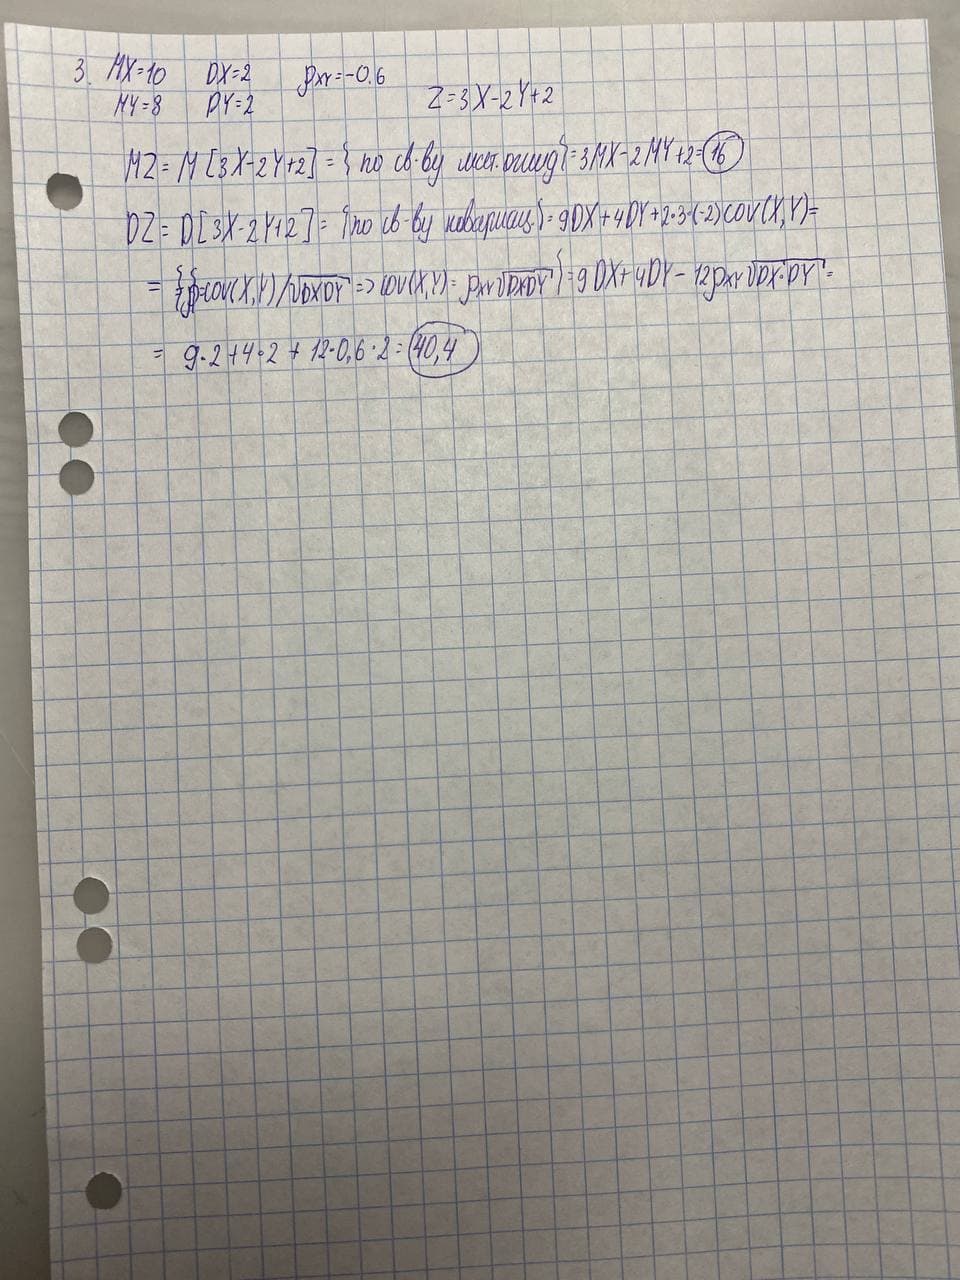 3. MX=10 DX=2 ρxy=-0.6
MY=8 DY=2 Z=3X-2Y+2
MZ= M[3X-2Y+2]={по св-ву мат.ожид}=3MX-2MY+2=16
DZ= D[3X-2Y+2]={по св-ву ковариац.}=9DX+4DY+2·3·(-2)cov(X,Y)=
={ρ=cov(X,Y)/√DXDY => cov(X,Y)=ρxy√DXDY}=9DX+4DY-12ρxy√DX·DY=
= 9·2+4·2+12·0,6·2=40,4